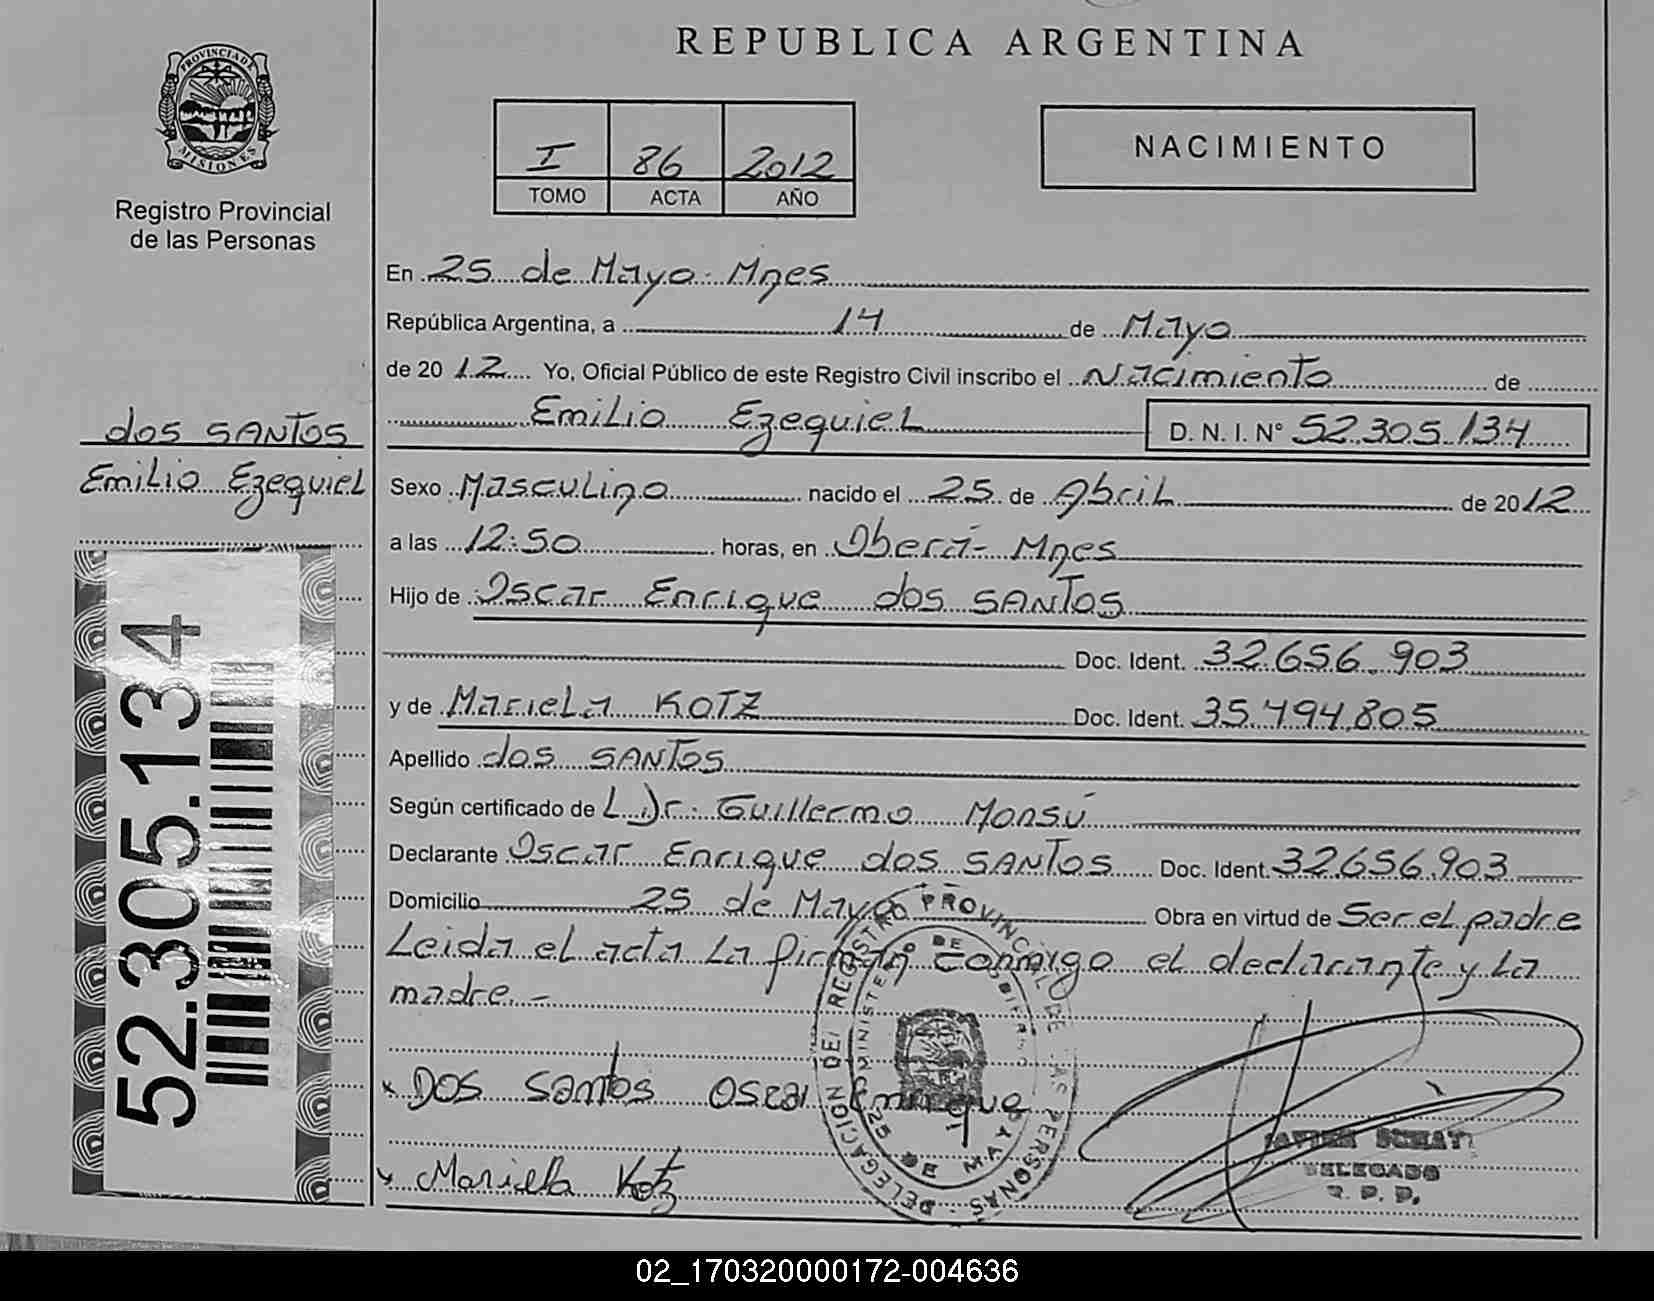 REPUBLICA ARGENTINA
PROVINCIA DE
MISIONES
Registro Provincial
de las Personas
I 86 2012
TOMO ACTA AÑO
NACIMIENTO
En 25 de Mayo. Mnes
República Argentina, a 14 de Mayo
de 2012 Yo, Oficial Público de este Registro Civil inscribo el Nacimiento de
Emilio Ezequiel D. N. I. N° 52.305.134
dos SANTOS
Emilio Ezequiel
Sexo Masculino nacido el 25 de Abril de 2012
a las 12:50 horas, en Oberá- Mnes
Hijo de Oscar Enrique dos SANTOS
Doc. Ident. 32.656.903
y de Mariela KOTZ Doc. Ident. 35.494.805
Apellido dos SANTOS
Según certificado de L. Dr. Guillermo Monsú
Declarante Oscar Enrique dos SANTOS Doc. Ident. 32656.903
Domicilio 25 de Mayo Obra en virtud de Ser el padre
Leida el acta La firman conmigo el declarante y La
madre.-
DOS Santos Oscar Enrique
Mariella Kotz
52.305.134
DELEGACION DEL REGISTRO PROVINCIAL DE LAS PERSONAS
MINISTERIO DE GOBIERNO
25 DE MAYO
DELEGADO
R. P. P.
02_170320000172-004636